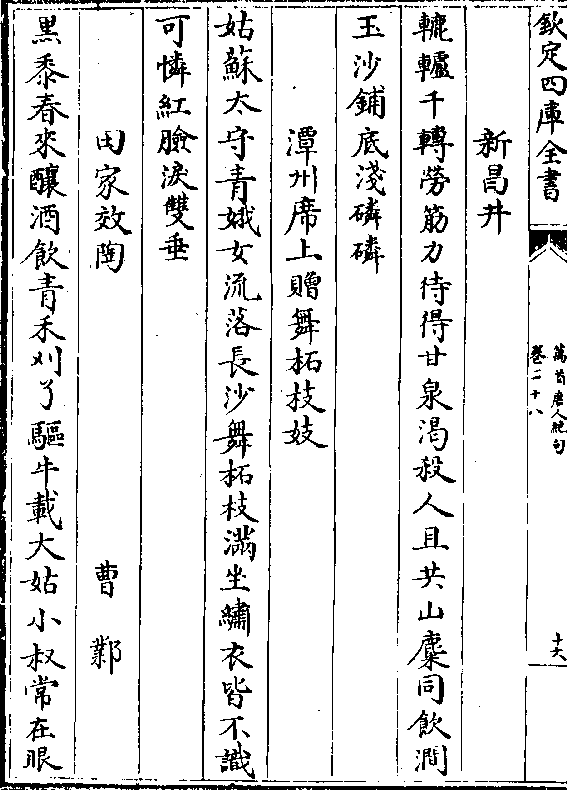 欽定四庫全書
萬首唐人絶句
卷二十八
十六
新昌井
轆轤千轉勞筋力待得甘泉渴殺人且共山麋同飲澗
玉沙鋪底淺磷磷
潭州席上贈舞柘枝妓
姑蘇太守青娥女流落長沙舞柘枝滿坐繡衣皆不識
可憐紅臉淚雙垂
田家效陶
曹鄴
黒黍舂來釀酒飲青禾刈了驅牛載大姑小叔常在眼